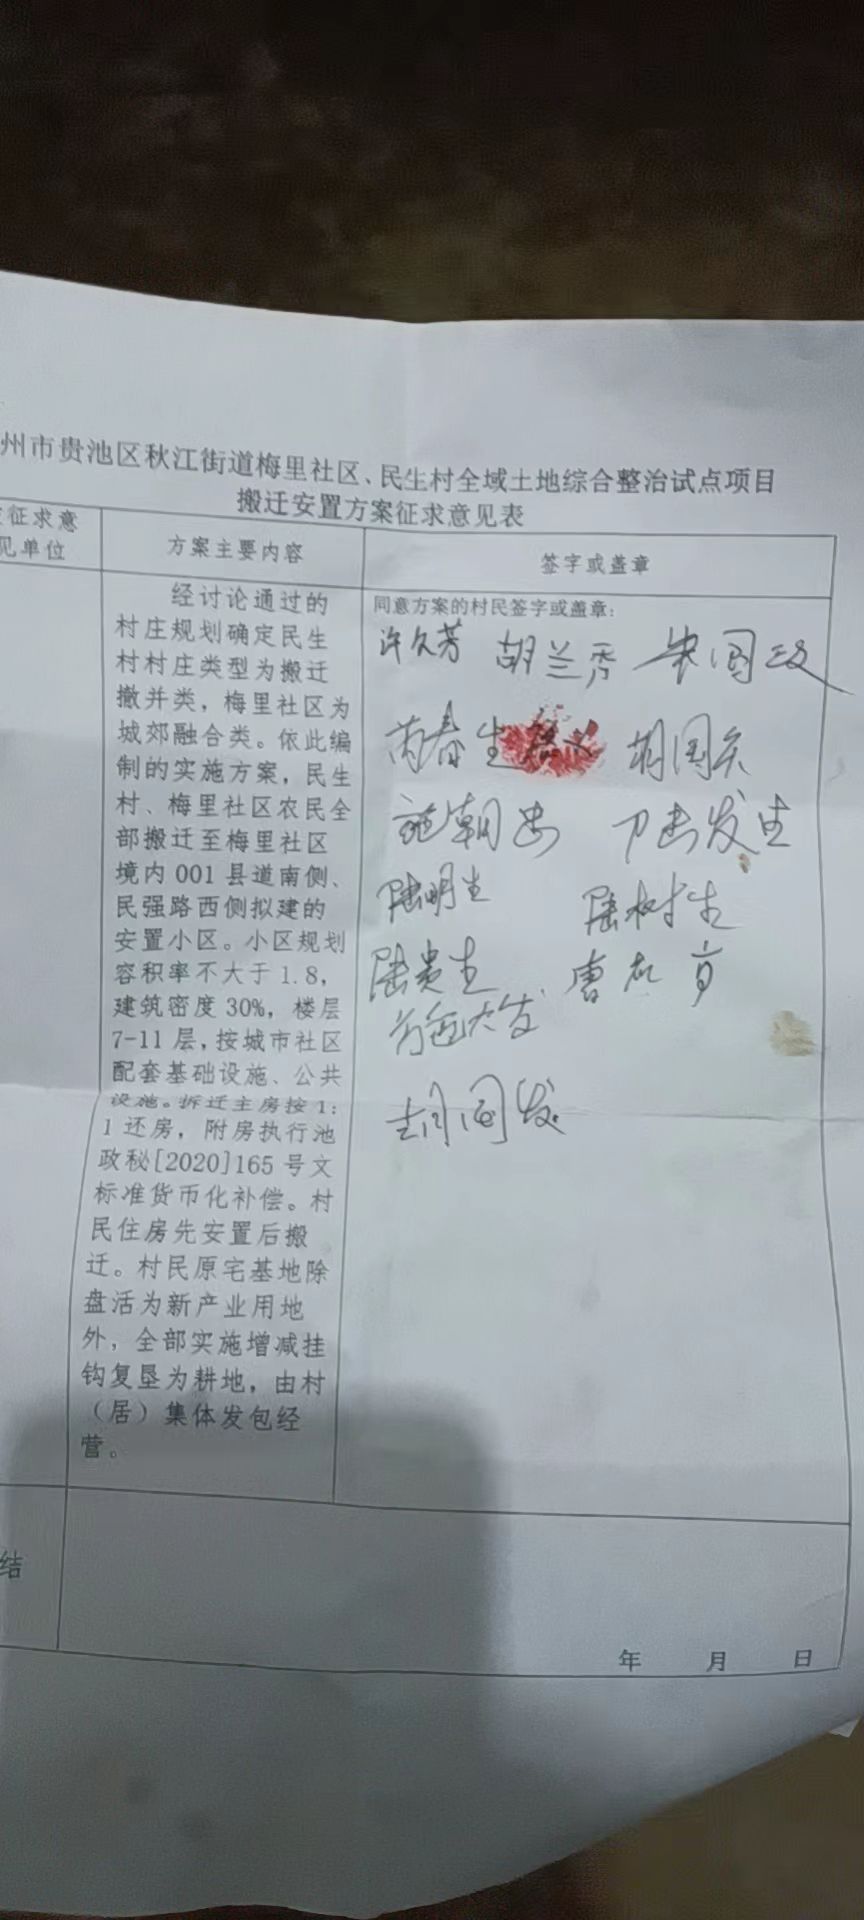 州市贵池区秋江街道梅里社区、民生村全域土地综合整治试点项目
搬迁安置方案征求意见表
征求意
见单位
方案主要内容
签字或盖章
经讨论通过的
村庄规划确定民生
村村庄类型为搬迁
撤并类，梅里社区为
城郊融合类。依此编
制的实施方案，民生
村、梅里社区农民全
部搬迁至梅里社区
境内 001 县道南侧、
民强路西侧拟建的
安置小区。小区规划
容积率不大于 1.8，
建筑密度 30%，楼层
7-11 层，按城市社区
配套基础设施、公共
设施。拆迁主房按 1：
1 还房，附房执行池
政秘[2020]165 号文
标准货币化补偿。村
民住房先安置后搬
迁。村民原宅基地除
盘活为新产业用地
外，全部实施增减挂
钩复垦为耕地，由村
（居）集体发包经
营。
同意方案的村民签字或盖章：
许久芳 胡兰秀
春生
陆明生 陆树生
陆贵生
结
年 月 日